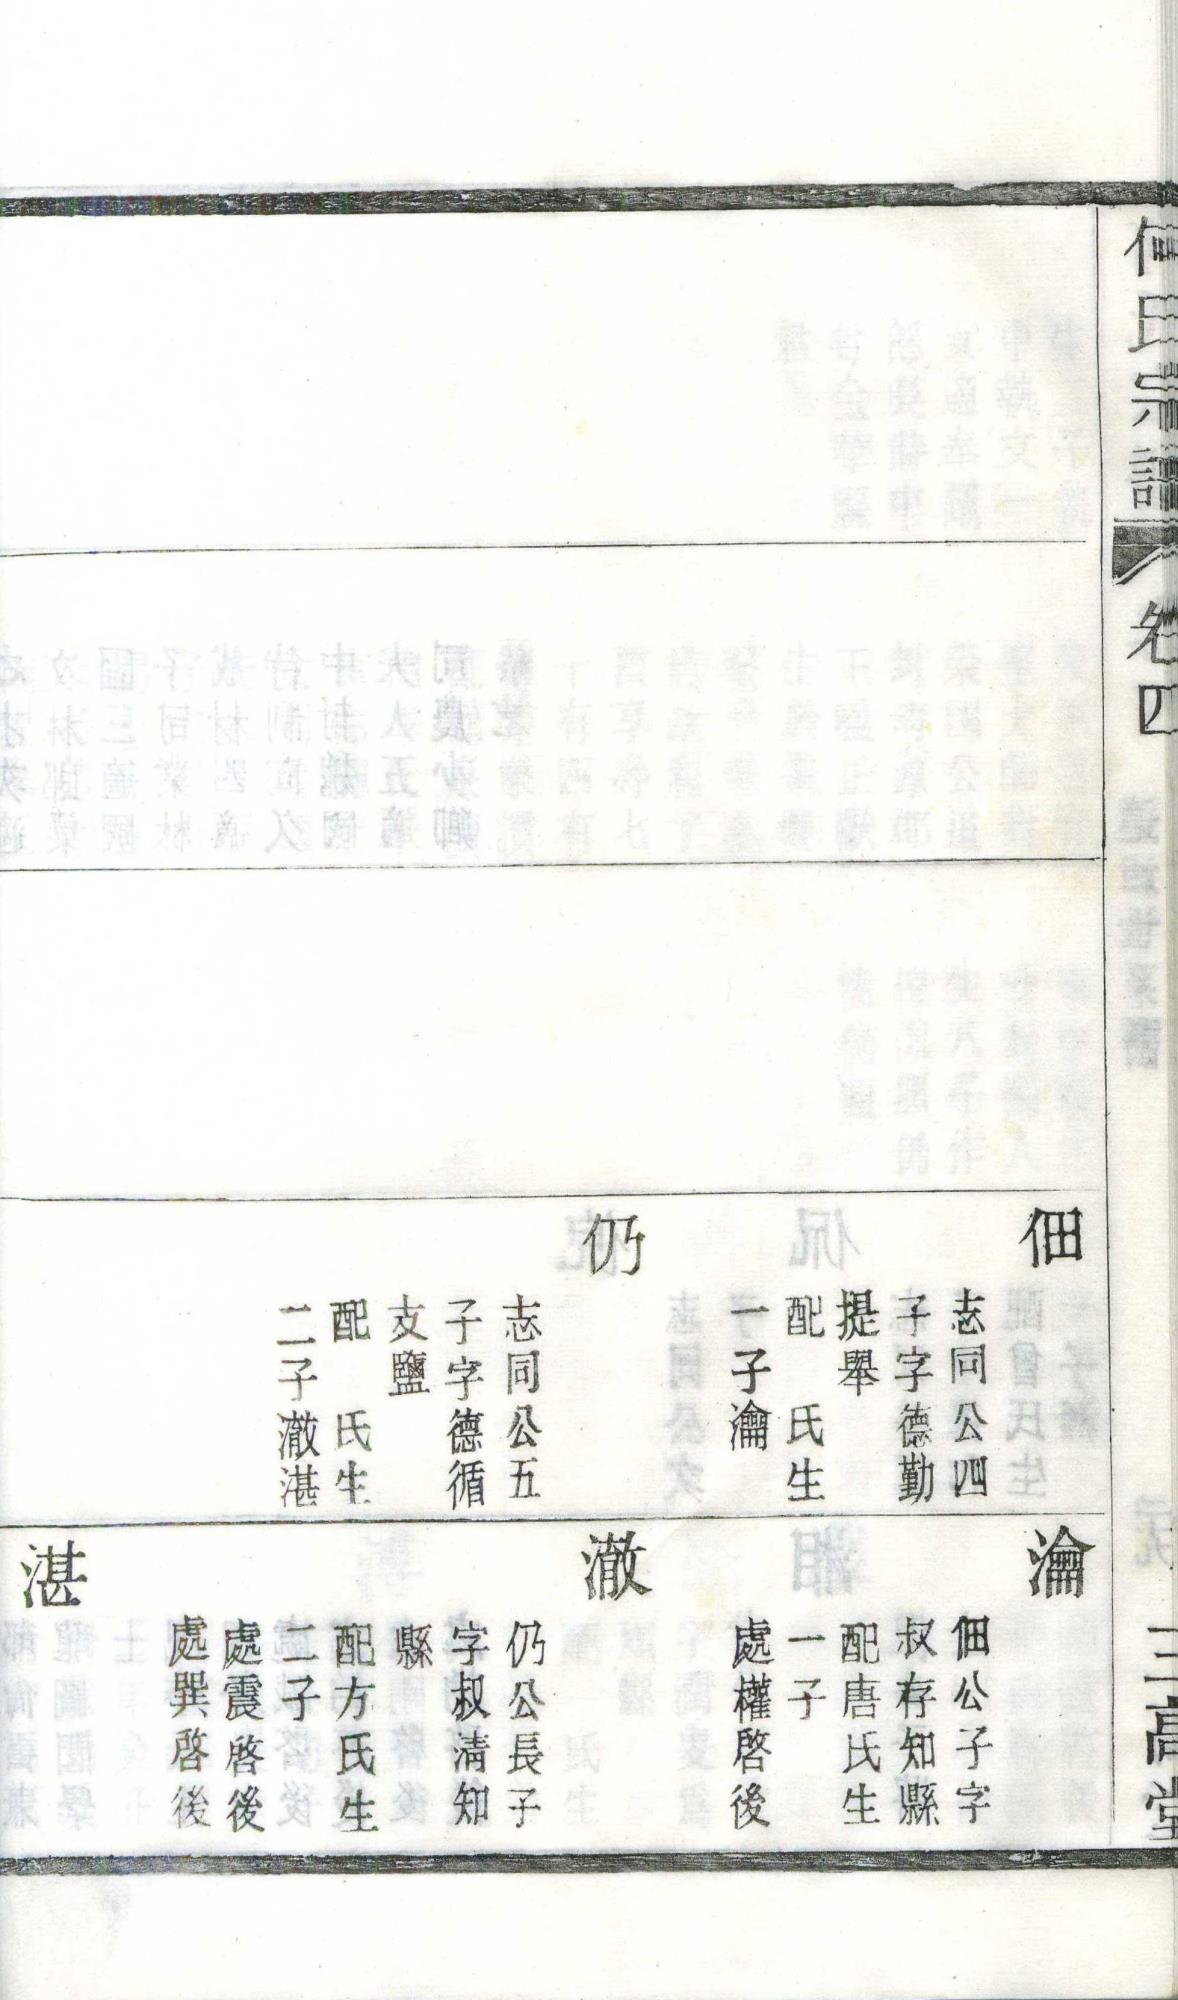 何氏宗譜
卷四
三高堂
佃
志同公四
子字德勤
提舉
配　氏生
一子瀹
仍
志同公五
子字德循
支鹽
配　氏生
二子澈湛
瀹
佃公子字
叔存知縣
配唐氏生
一子
處權啓後
澈
仍公長子
字叔清知
縣
配方氏生
二子
處震啓後
處巽啓後
湛